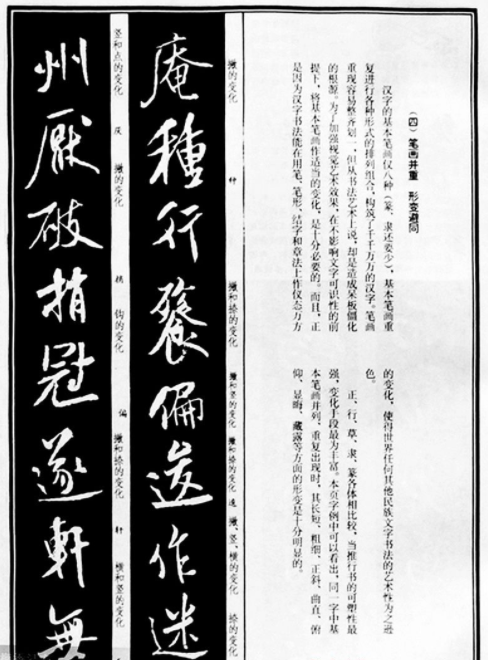 (四) 笔画并重 形变避同
汉字的基本笔画仅八种(篆、隶还要少),基本笔画重
复进行各种形式的排列组合,构筑了千千万万的汉字。笔画
重现容易整齐划一,但从书法艺术上说,却是造成呆板僵化
的根源。为了加强视觉艺术效果,在不影响文字可识性的前
提下,将基本笔画作适当的变化,是十分必要的。而且,正
是因为汉字书法能在用笔、笔形、结字和章法上作仪态万方
的变化,使得世界任何其他民族文字书法的艺术性为之逊
色。
正、行、草、隶、篆各体相比较,当推行书的可塑性最
强,变化手段最为丰富。本页字例中可以看出,同一字中基
本笔画并列、重复出现时,其长短、粗细、正斜、曲直、俯
仰、显晦、藏露等方面的形变是十分明显的。
撇的变化 种 撇和捺的变化 撇和竖的变化 撇和捺的变化 逸 撇、竖、横的变化 捺的变化
庵種行餐偏逡作迷
竖和点的变化 灰 撇的变化 梢 钩的变化 偏 撇和捺的变化 轩 横和竖的变化
州厭破梢冠遂軒無